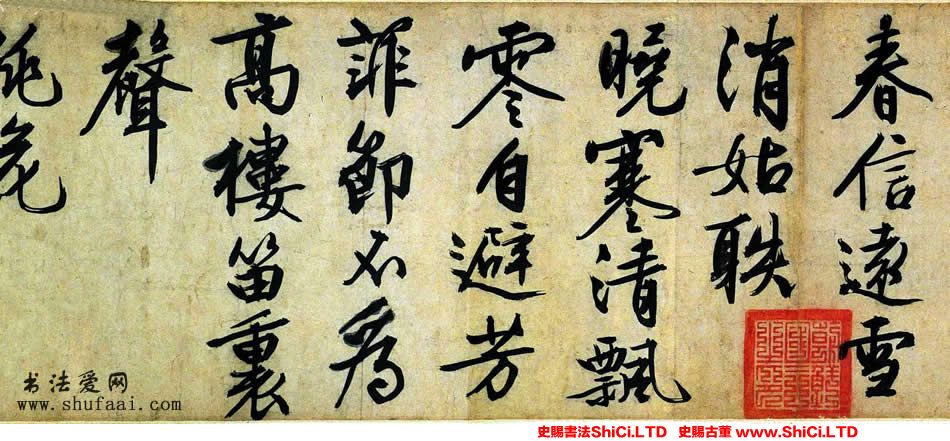 春信遠雪
消姑
曉寒清飄
零自避芳
菲節不為
高樓笛裏
聲
书法爱网
www.shufaai.com
史賜書法ShiCi.LTD 史賜古董 www.ShiCi.LTD